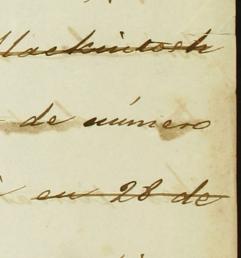 Mackintosh
de número
en 28 de